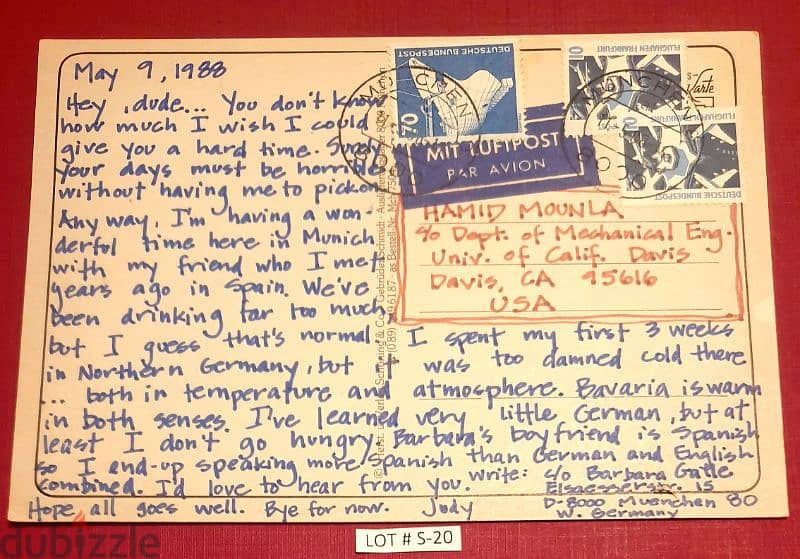 May 9, 1988
Hey, dude... You don't know
how much I wish I could
give you a hard time. Surely
your days must be horrible
without having me to pick on.
Any way, I'm having a won-
derful time here in Munich
with my friend who I met
years ago in Spain. We've
been drinking far too much,
but I guess that's normal
I spent my first 3 weeks
in Northern Germany, but was too damned cold there
... both in temperature and atmosphere. Bavaria is warm
in both senses. I've learned very little German, but at
least I don't go hungry. Barbara's boyfriend is Spanish
so I end-up speaking more Spanish than German and English
combined. I'd love to hear from you. Write: c/o Barbara Gatle
Elsaesserstr. 15
D-8000 Muenchen 80
W. Germany
Hope all goes well. Bye for now. Judy
DEUTSCHE BUNDESPOST
70
FLUGHAFEN FRANKFURT
10
FLUGHAFEN FRANKFURT
10
DEUTSCHE BUNDESPOST
MÜNCHEN
8000
MÜNCHEN
8000
Karte
MIT LUFTPOST
PAR AVION
HAMID MOUNLA
c/o Dept. of Mechanical Eng.
Univ. of Calif. Davis
Davis, CA 95616
USA
LOT # S-20
dubizzle